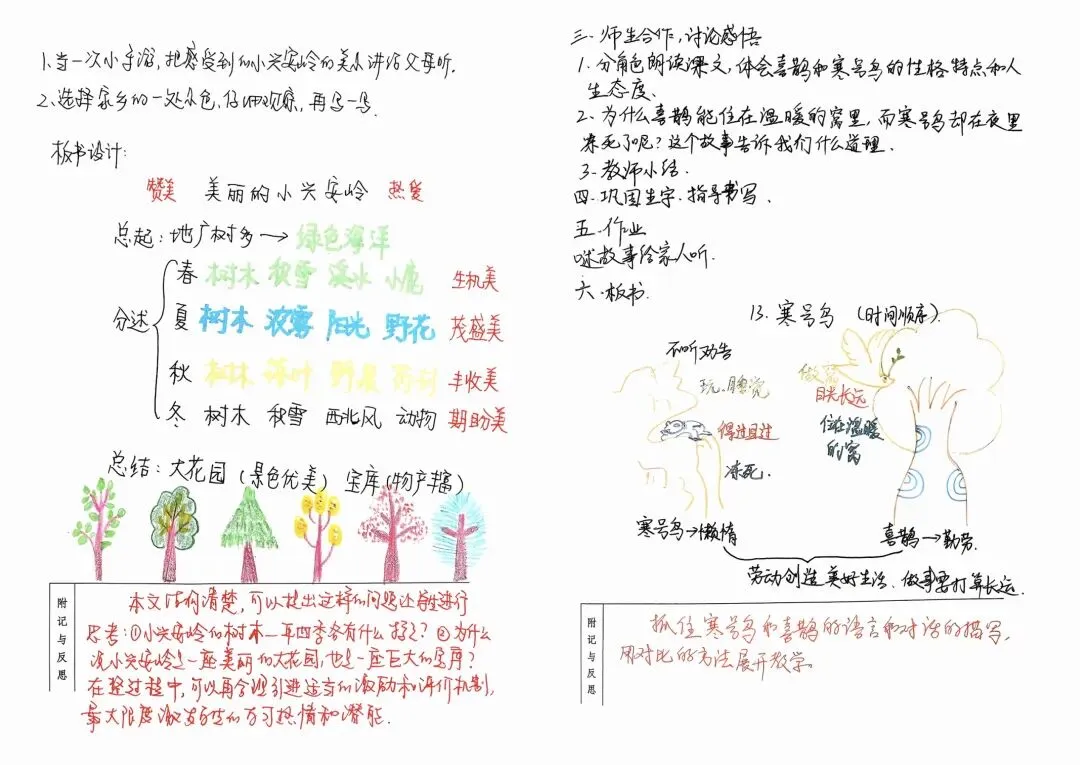 1.当一次小导游,把感受到的小兴安岭的美景讲给父母听.
2.选择家乡的一处景色,仔细观察,再写一写.
板书设计:
赞美 美丽的小兴安岭 热爱
总起:地广树多→绿色海洋
分述
春 树木 积雪 溪水 小鹿 生机美
夏 树木 浓雾 阳光 野花 茂盛美
秋 树林 落叶 野果 药材 丰收美
冬 树木 积雪 西北风 动物 期盼美
总结:大花园(景色优美) 宝库(物产丰富)
附记与反思
本文结构清楚,可以提出这样的问题让学生进行
思考:①小兴安岭的树木一年四季各有什么特色?②为什么
说小兴安岭是一座美丽的大花园,也是一座巨大的宝库?
在整过程中,可以再合理引进适当的激励和评价机制,
最大限度激发学生的学习热情和潜能.
三.师生合作,讨论感悟
1.分角色朗读课文,体会喜鹊和寒号鸟的性格特点和人
生态度.
2.为什么喜鹊能住在温暖的窝里,而寒号鸟却在夜里
冻死了呢?这个故事告诉我们什么道理.
3.教师小结.
四.巩固生字.指导书写.
五.作业
故事给家人听.
六.板书.
13.寒号鸟 (时间顺序)
不听劝告
玩、睡觉 做窝
得过且过 目光长远
冻死. 住在温暖
的窝
寒号鸟→懒惰 喜鹊→勤劳.
劳动创造美好生活、做事要打算长远.
附记与反思
抓住寒号鸟和喜鹊的语言和对话的描写,
用对比的方法展开教学。